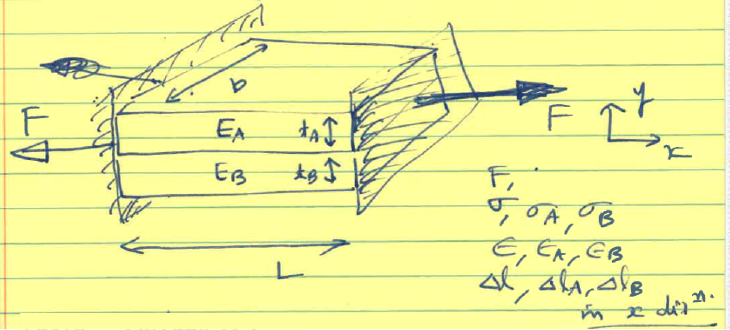 b
F
E_A t_A
F
y
x
E_B t_B
L
F,
σ, σ_A, σ_B
ε, ε_A, ε_B
Δl, Δl_A, Δl_B
in x dirⁿ.